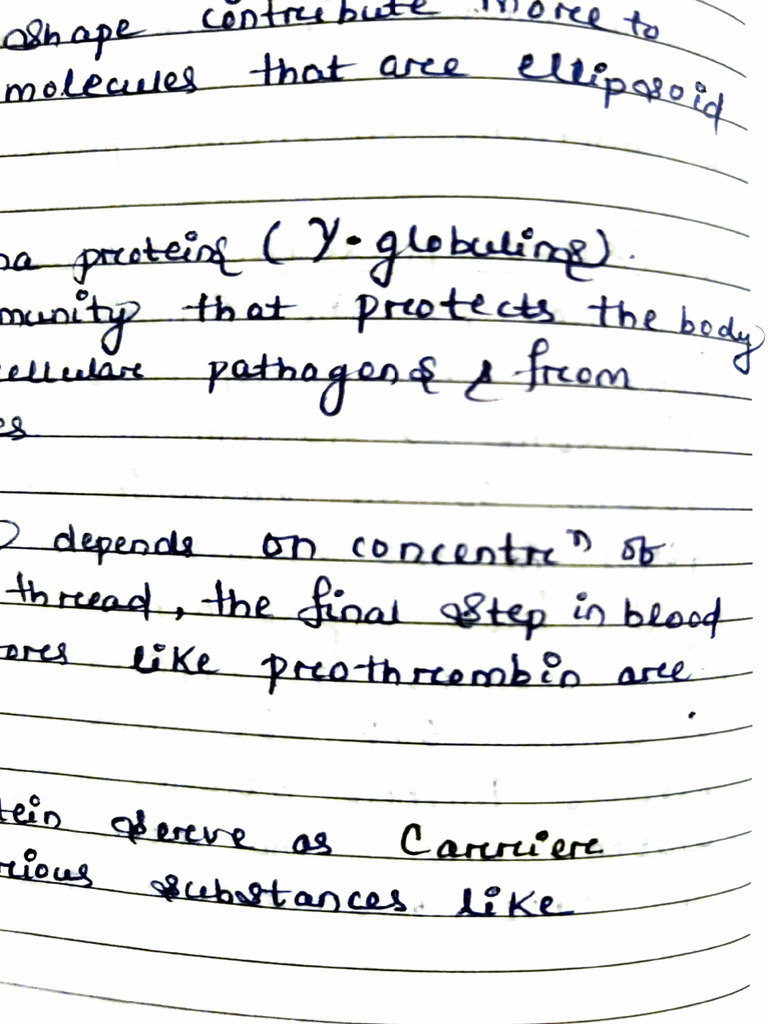 shape contribute more to
molecules that are ellipsoid
ma proteins (γ-globulins).
munity that protects the body
cellular pathogens & from
es
depends on concentrⁿ of
thread, the final step in blood
ors like prothrombin are
tein serve as Carrier
rious substances like